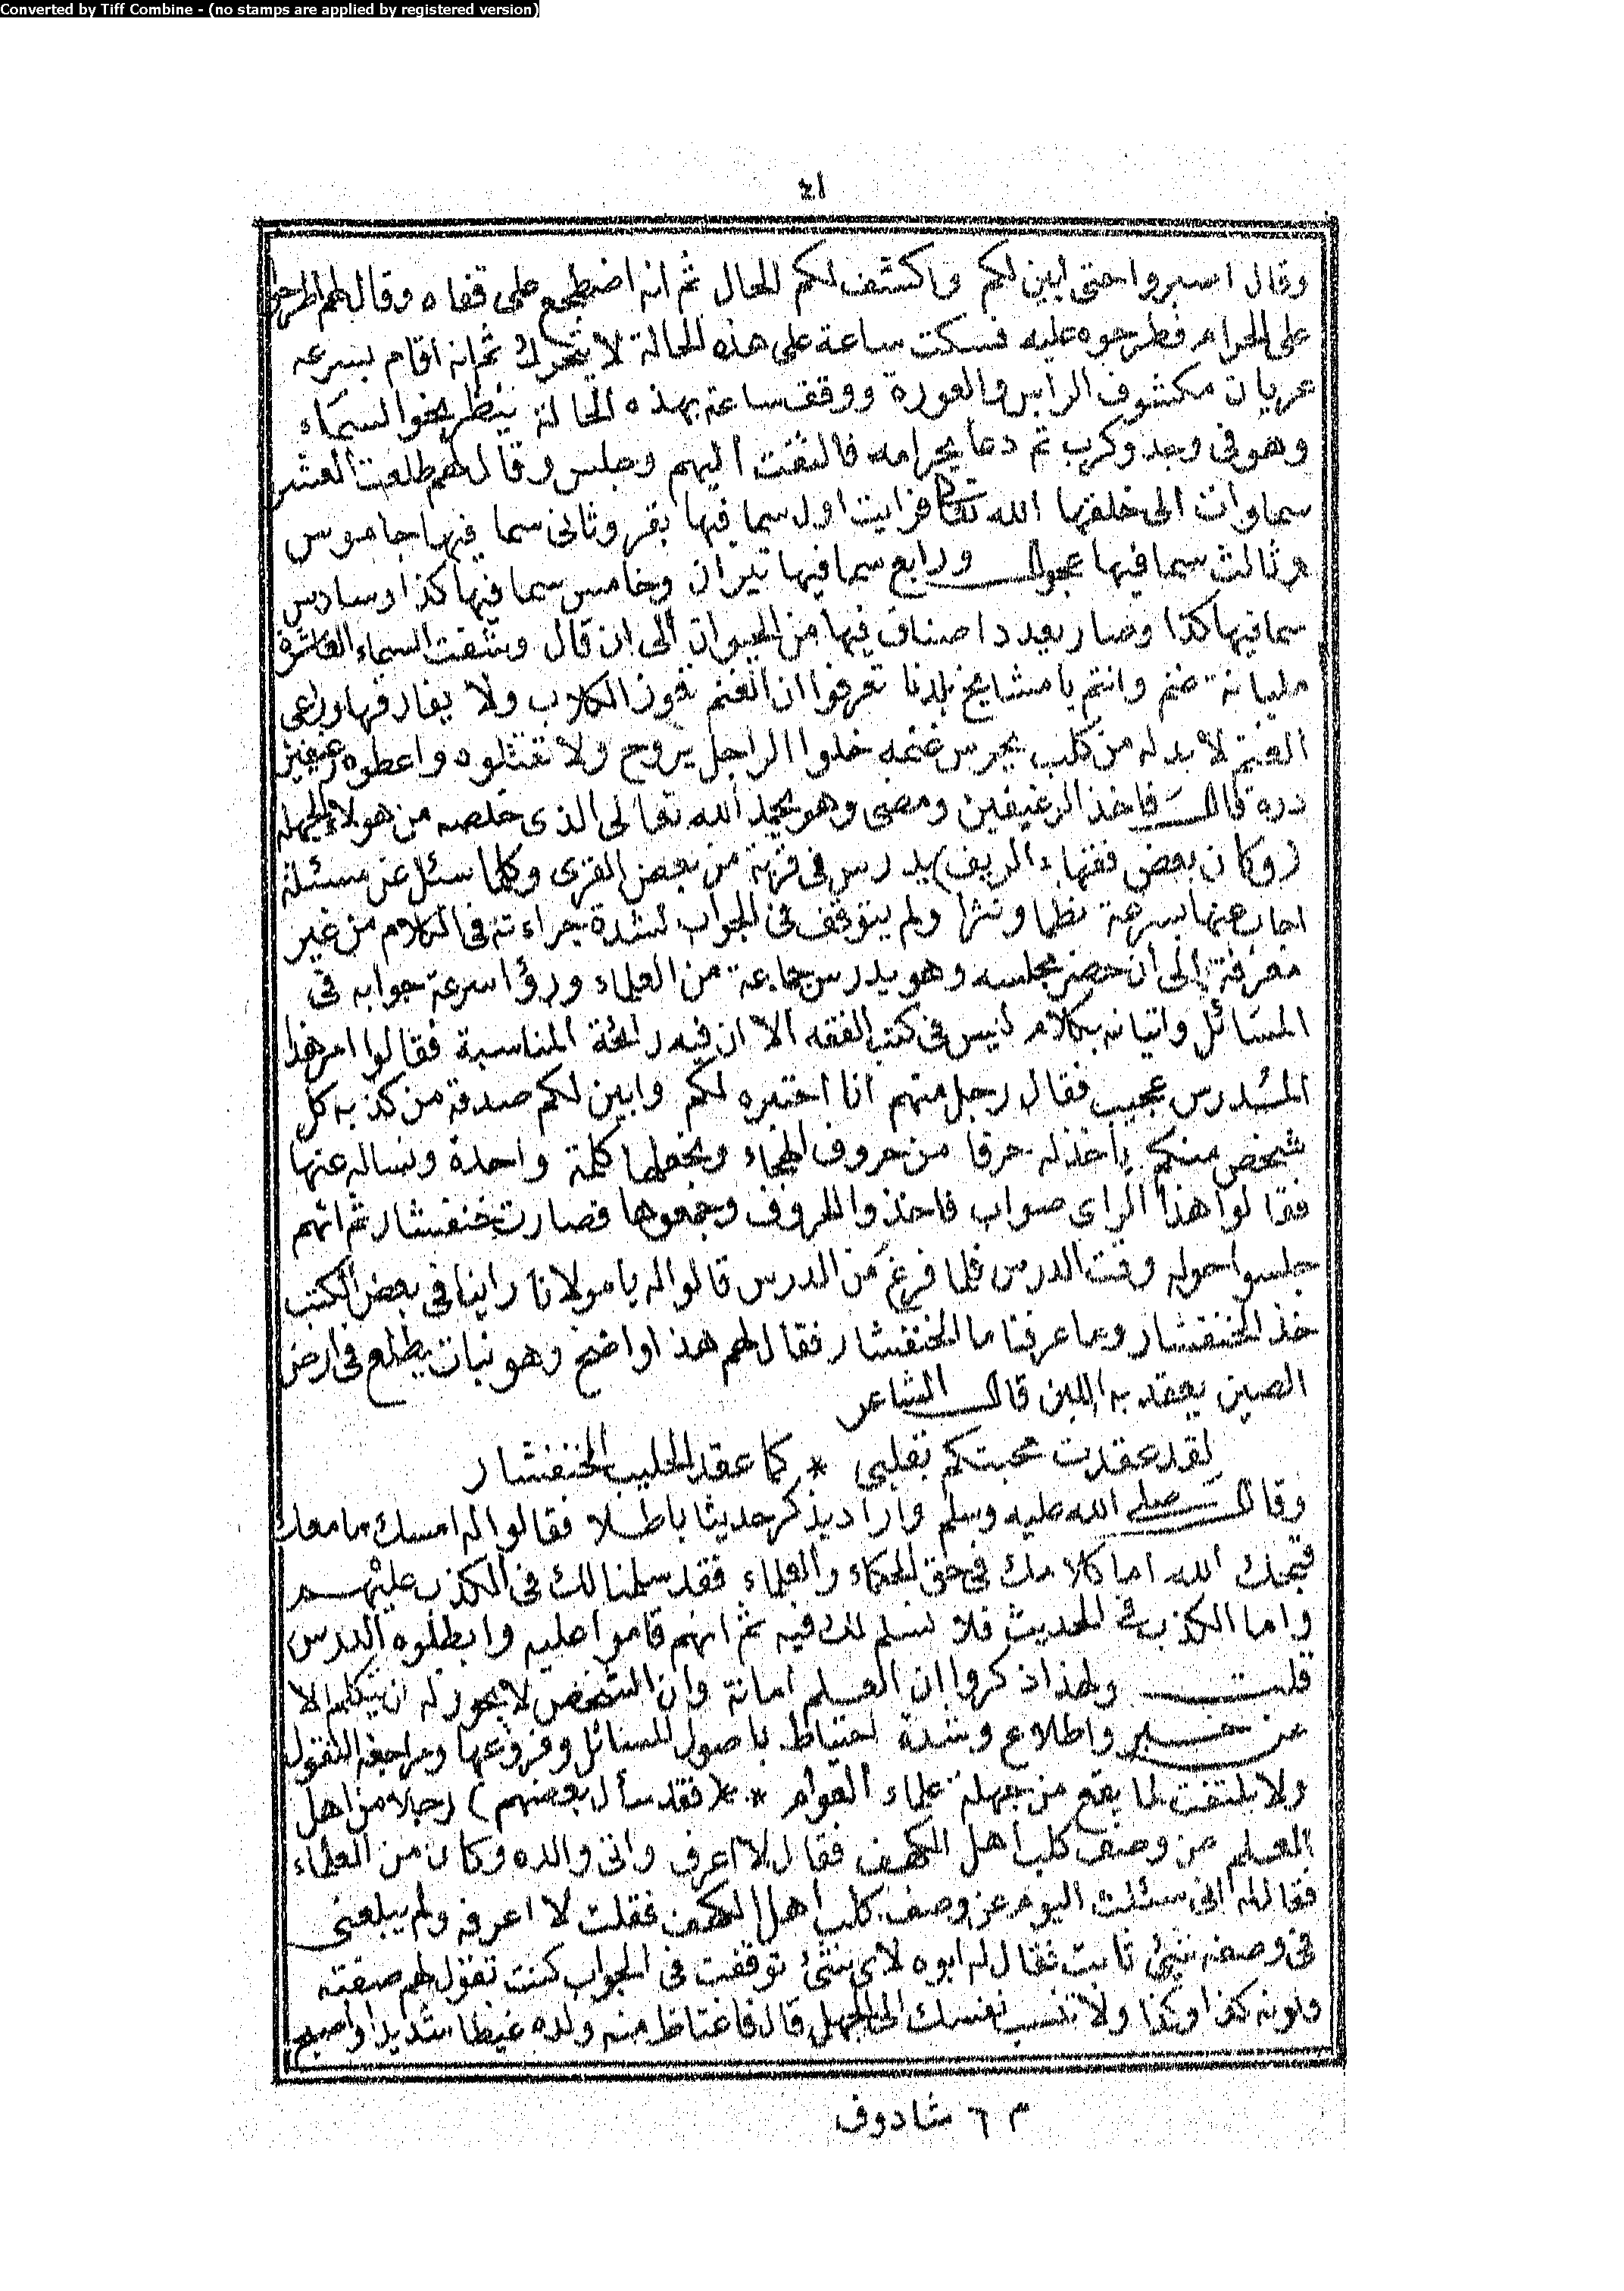 Converted by Tiff Combine - (no stamps are applied by registered version)
٤١
وقال اصبروا حتى ابين لكم واكشف لكم الحال ثم انه اضطجع على قفاه وقال لهم اطرحوا
على الحرام فطرحوه عليه فسكت ساعة على هذه الحالة لا يتحرك ثم انه اقام بسرعه
عريان مكشوف الراس والعورة ووقف ساعة بهذه الحالة ينظر نحو السماء
وهو فى وجد وكرب ثم دعا بحرامه فالتفت اليهم وجلس وقال لهم طلعت العشر
سماوات الى خلقها الله تعالى فرايت اول سما فيها بقر وثانى سما فيها جاموس
وثالث سما فيها عجول ورابع سما فيها تيران وخامس سما فيها كذا وسادس
سما فيها كذا وصار يعدد اصناف فيها من الحيوان الى ان قال وشفت السماء العاشرة
مليانة غنم وانتم يا مشايخ بلدنا تعرفوا ان الغنم تعوز الكلاب ولا يفارقها وراعى
الغنم لا بد له من كلب يحرس غنمه خلوا الراجل يروح ولا تقتلوه واعطوه رغيفين
دره قال فاخذ الرغيفين ومضى وهو يحمد الله تعالى الذى خلصه من هولاء الجهله
(وكان بعض فقهاء الريف) يدرس فى قرية من بعض القرى وكلما سئل عن مسئلة
اجاب عنها بسرعة نظما ونثرا ولم يتوقف فى الجواب لشدة جراءته فى الكلام من غير
معرفة الى ان حضر مجلسه وهو يدرس جماعة من العلماء ورؤا سرعة جوابه فى
المسائل واتيانه بكلام ليس فى كتب الفقه الا ان فيه رائحة المناسبة فقالوا امر هذا
المدرس عجيب فقال رجل منهم انا اختبره لكم وابين لكم صدقه من كذبه كل
شخص منكم ياخذ له حرفا من حروف الهجاء ونجعلها كلمة واحدة ونساله عنها
فقالوا هذا الراى صواب فاخذوا الحروف وجمعوها فصارت خنفشار ثم انهم
جلسوا حوله وقت الدرس فلما فرغ من الدرس قالوا له يا مولانا راينا فى بعض الكتب
خذ الخنفشار وما عرفنا ما الخنفشار فقال لهم هذا واضح وهو نبات يطلع فى ارض
الصين يعقد به اللبن قال الشاعر
لقد عقدت محبتكم بقلبى * كما عقد الحليب الخنفشار
وقال صلى الله عليه وسلم واراد يذكر حديثا باطلا فقالوا له امسك ما معك
قبحك الله اما كلامك فى حق الحكماء والعلماء فقد سلمنا لك فى الكذب عليهم
واما الكذب فى الحديث فلا نسلم لك فيه ثم انهم قاموا عليه وابطلوه الدرس
قلت ولهذا ذكروا ان العلم امانة وان الشخص لا يجوز له ان يتكلم الا
عن خبر واطلاع وشدة احتياط باصول المسائل وفروعها ومراجعة النقول
ولا يلتفت لما يقع من جهلة علماء العوام ** (فقد سأل بعضهم) رجلا من اهل
العلم عن وصف كلب اهل الكهف فقال لا اعرف واتى والده وكان من العلماء
فقال له انى سئلت اليوم عن وصف كلب اهل الكهف فقلت لا اعرفه ولم يبلغنى
فى وصفه شئ ثابت فقال له ابوه لاى شئ توقفت فى الجواب كنت تقول لهم صفته
ولونه كذا وكذا ولا تنسب نفسك الى الجهل قال فاغتاظ منه ولده غيظا شديدا واصبح
م ٦ شادوف